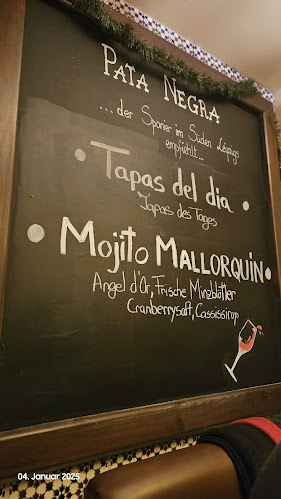 PATA NEGRA
... der Spanier im Süden Leipzigs
empfiehlt ...
• Tapas del dia •
Tapas des Tages
• Mojito MALLORQUIN •
Angel d'Or, Frische Minzblätter
Cranberrysaft, Cassissirup
04. Januar 2025